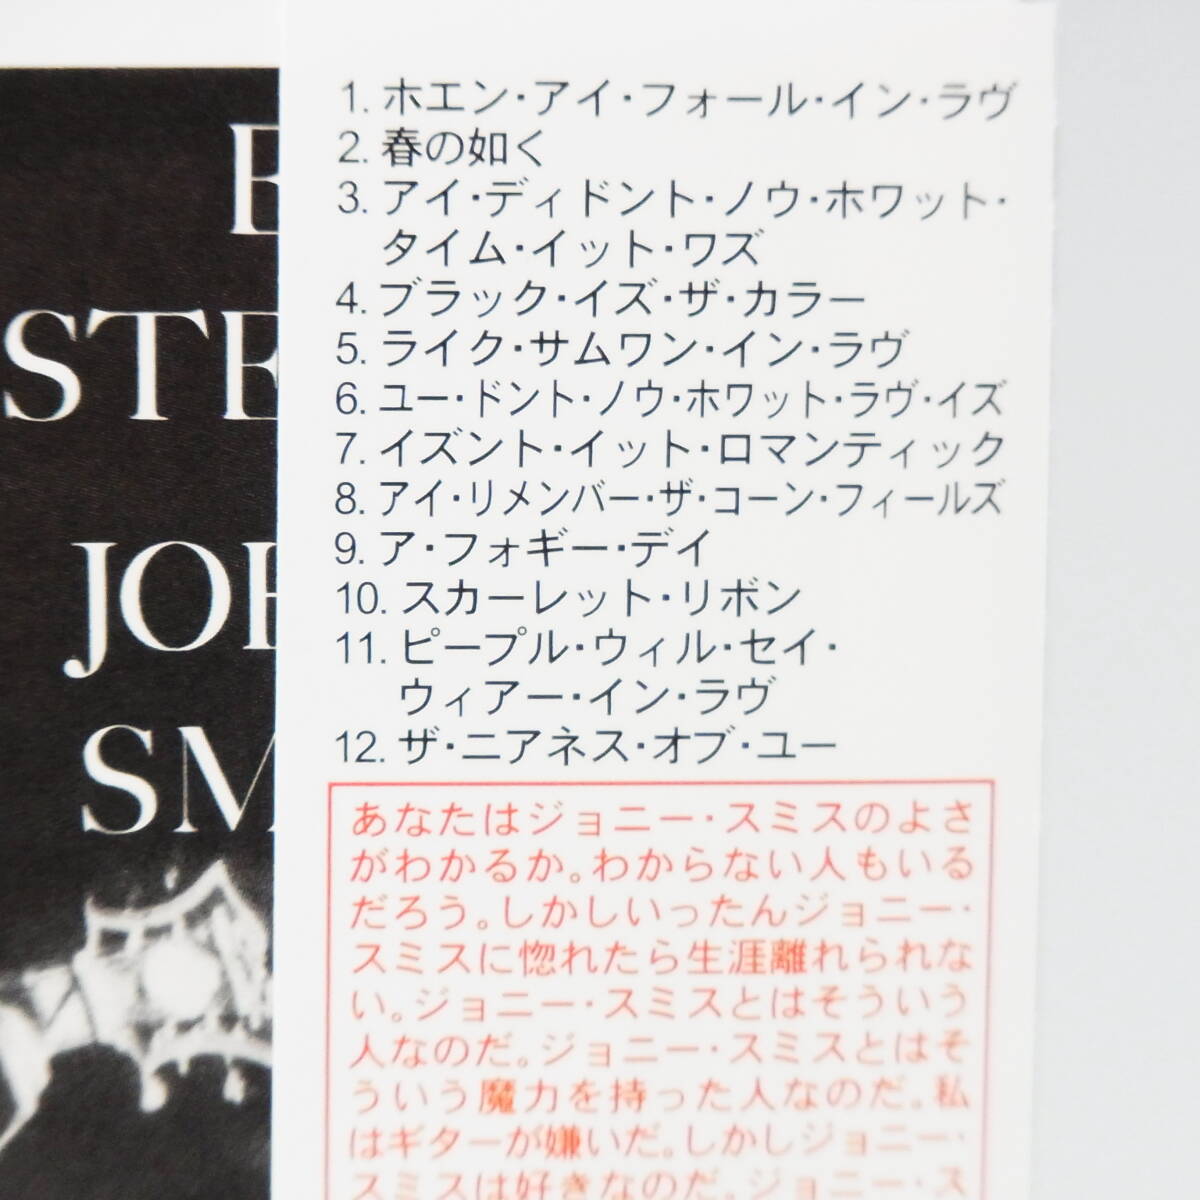 STE
JOH
SM
1. ホエン・アイ・フォール・イン・ラヴ
2. 春の如く
3. アイ・ディドント・ノウ・ホワット・
タイム・イット・ワズ
4. ブラック・イズ・ザ・カラー
5. ライク・サムワン・イン・ラヴ
6. ユー・ドント・ノウ・ホワット・ラヴ・イズ
7. イズント・イット・ロマンティック
8. アイ・リメンバー・ザ・コーン・フィールズ
9. ア・フォギー・デイ
10. スカーレット・リボン
11. ピープル・ウィル・セイ・
ウィアー・イン・ラヴ
12. ザ・ニアネス・オブ・ユー
あなたはジョニー・スミスのよさ
がわかるか。わからない人もいる
だろう。しかしいったんジョニー・
スミスに惚れたら生涯離れられな
い。ジョニー・スミスとはそういう
人なのだ。ジョニー・スミスとはそ
ういう魔力を持った人なのだ。私
はギターが嫌いだ。しかしジョニー・
スミスは好きなのだ。ジョニー・ス